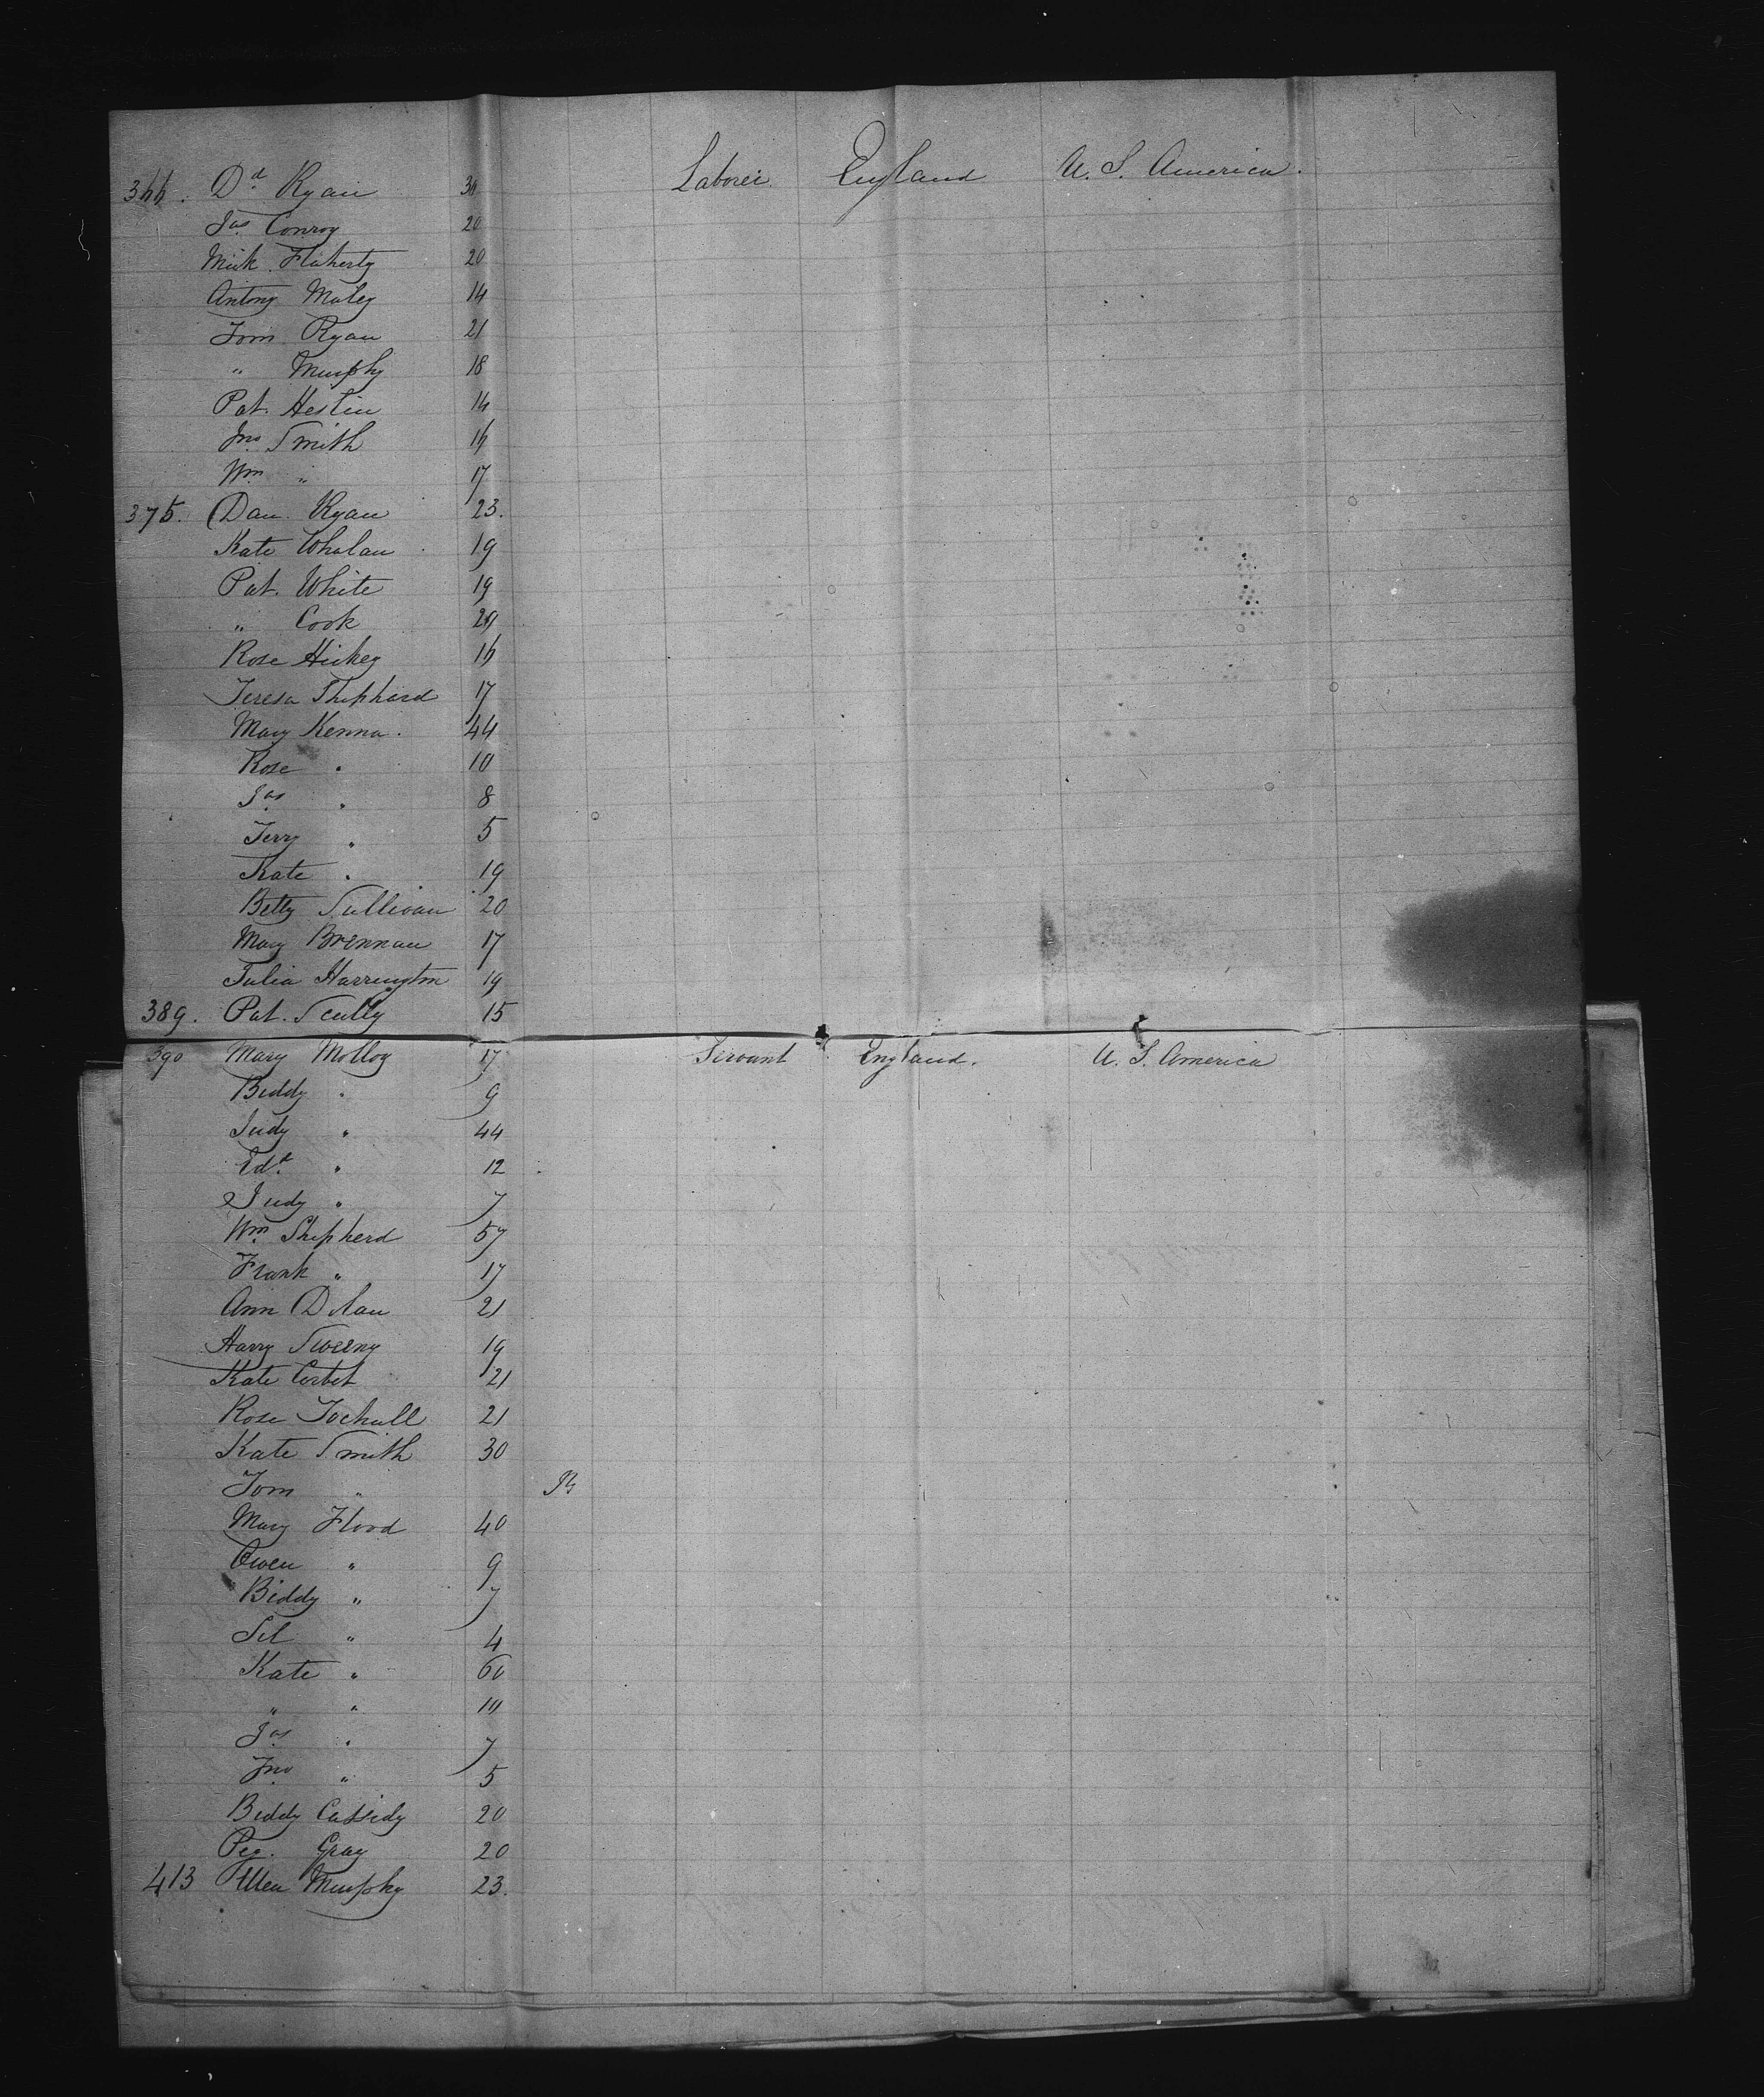 366. Dd Ryan 30 Laborer England U. S. America.
Jas Conroy 20
Mick Flaherty 20
Antony Maley 14
Tom Ryan 21
" Murphy 18
Pat. Heslin 14
Jno Smith 14
Wm " 17
375. Dan. Ryan 23.
Kate Whalan 19
Pat. White 19
" Cook
Rose Hickey 14
Teresa Shephard 17
Mary Kenna. 44
Rose " 10
Jas " 8
Terry " 5
Kate " 19
Betty Sullivan 20
Mary Brennan 17
Julia Harrington 19
389. Pat. Scully 15
390 Mary Molloy 17 Servant England. U. S. America
Biddy " 9
Judy " 44
Edd " 12
Judy " 7
Wm Shepherd 57
Frank " 17
Ann Dolan 21
Harry Sweeny 19
Kate Corbet 21
Rose Tochall 21
Kate Smith 30
Tom "
Mary Flood 40
Owen " 9
Biddy " 7
" 4
Kate " 60
" " 10
Jas " 7
Jno " 5
Biddy Cassidy 20
Peg. Gray 20
413 Ellen Murphy 23.